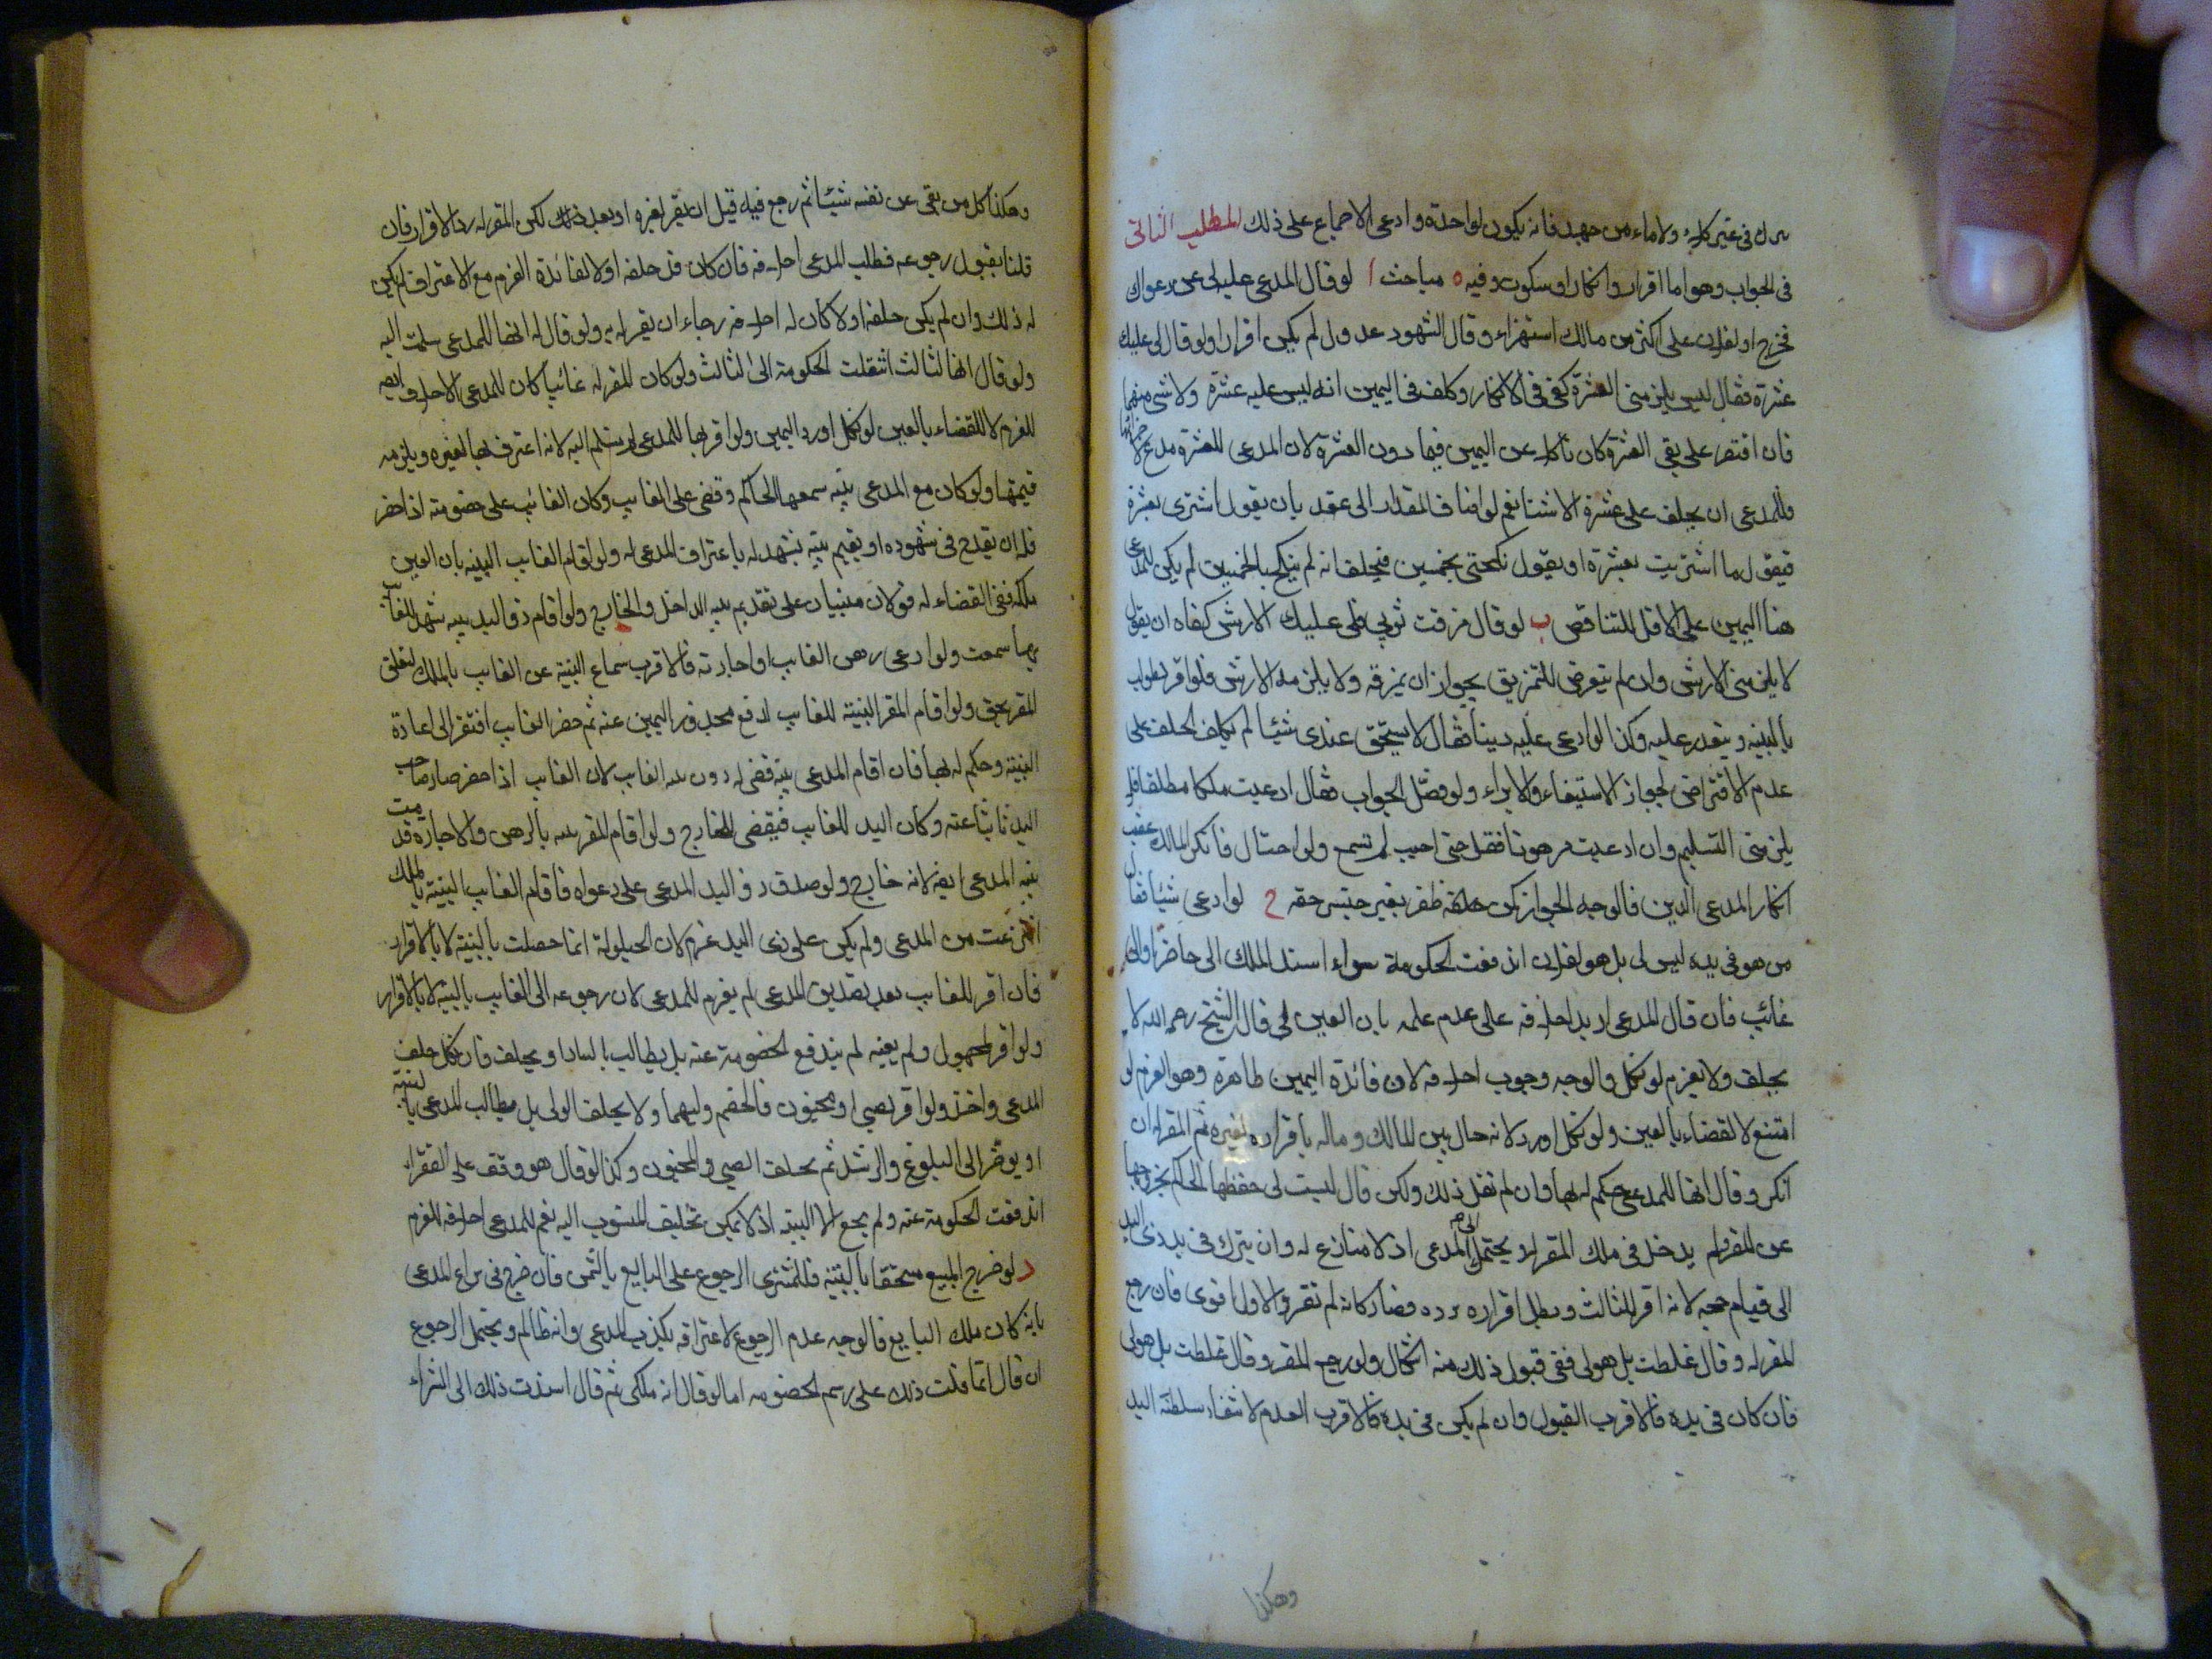 يترك في غير كلاء ولا ماء من جهد فانه يكون لواجده وادعى الاجماع على ذلك المطلب الثاني
في الجواب وهو اما اقرار وانكار او سكوت وفيه ٥ مباحث ا لو قال المدعى عليه لي عن دعواك
مخرج او لفلان علي اكثر من مالك استهزاء وقال الشهود عدول لم يكن اقرارا ولو قال لي عليك
عشرة فقال ليس يلزمني العشرة كفى في الانكار وكلف في اليمين انه ليس عليه عشرة ولا شي منها
فان اقتصر على نفي العشرة كان ناكلا عن اليمين فيما دون العشرة لان المدعي للعشرة مدع لاجزائها
فللمدعي ان يحلف على عشرة الا شيئا نعم لو اضاف المقدار الى عقد بان يقول اشترى بعشرة
فيقول ما اشتريت بعشرة او يقول نكحتي بخمسين فيحلف انه لم ينكح بالخمسين لم يكن للمدعي
هنا اليمين على الاقل للتناقض ب لو قال مزقت ثوبي فلي عليك الارش كفاه ان يقول
لا يلزمني الارش وان لم يتعرض للتمزيق لجواز ان يمزقه ولا يلزمه الارش فلو اقر لطولب
بالبينه ويتعذر عليه وكذا لو ادعى عليه دينا فقال لا يستحق عندي شيئا لم يكلف الحلف على
عدم الاقتراض لجواز الاستيفاء والابراء ولو فصل الجواب فقال ادعيت ملكا مطلقا فلا
يلزمني التسليم وان ادعيت مرهونا ففصل حتى اجيب لم تسمع ولو احتال فانكر المالك عقيب
انكار المدعي الدين فالوجه الجواز كمن ظفر بغير جنس حقه ج لو ادعى شيئا فقال
من هو في يده ليس لي بل هو لفلان اندفعت الحكومة سواء اسند الملك الى حاضر او الى
غائب فان قال المدعي اريد احلافه على عدم علمه بان العين لي قال الشيخ رحمه الله لا
يحلف ولا يغرم لو نكل والوجه وجوب احلافه لان فائدة اليمين ظاهرة وهو الغرم لو
امتنع لا القضاء بالعين ولو نكل او رد لانه حال بين المالك وماله باقراره لغيره ثم المقر له ان
انكر وقال انها للمدعي حكم له بها وان لم نقل ذلك ولكن قال ليست لي حفظها الحاكم لخروجها
عن المقر ولم يدخل في ملك المقر له ويحتمل الى المدعي اذ لا منازع له وان يترك في يد ذي اليد
الى قيام حجه لانه اقر للثالث وبطل اقراره برده فصار كانه لم يقر والاول اقوى فان رجع
المقر له وقال غلطت بل هو لي ففي قبول ذلك منه اشكال ولو رجع المقر وقال غلطت بل هو لي
فان كان في يده فالاقرب القبول وان لم يكن في يده فالاقرب العدم لانتفاء سلطنة اليد
وهكذا
وهكذا كل من نفى عن نفسه شيئا ثم رجع فيه قبل ان يقر لغيره او بعد ذلك لكن المقر له رد الاقرار فان
قلنا بقبول رجوعه فطلب المدعي احلافه فان كان قد حلفه اولا لفائدة الغرم مع الاعتراف لم يكن
له ذلك وان لم يكن حلفه اولا كان له احلافه رجاء ان يقر له به ولو قال له انها للمدعي سلمت اليه
ولو قال انها لثالث انتقلت الحكومة الى الثالث ولو كان المقر له غائبا كان للمدعي الاحلاف ايضا
للغرم لا للقضاء بالعين لو نكل او رد اليمين ولو اقر بها للمدعي لم يتسلم اليه لانه اعترف بها لغيره ويلزمه
قيمتها ولو كان مع المدعي بينه سمعها الحاكم وقضى على الغايب وكان الغايب على خصومته اذا حضر
فله ان يقدح في شهوده او يقيم بينه تشهد له باعتراف المدعي له ولو اقام الغايب البينه بان العين
ملكه ففي القضاء له قولان مبنيان على تقديم بينه الداخل والخارج ولو اقام ذو اليد بينه تشهد للغائب
بها سمعت ولو ادعى رهن الغايب او اجارته فالاقرب سماع البينة عن الغايب بالملك لتعلق
المقر بحق ولو اقام المقر البينة للغايب لدفع محذور اليمين عنه ثم حضر الغايب افتقر الى اعادة
البينة وحكم له بها فان اقام المدعي بينة قضى له دون بينه الغايب لان الغايب اذا حضر صار صاحب
اليد نابتاعنه وكان اليد للغايب فيقضى للخارج ولو اقام المقر بينه بالرهن والاجارة قدمت
بينة المدعي ايضا لانه خارج ولو صدق ذو اليد المدعي على دعواه فاقام الغايب البينة بالملك
انتزعت من المدعي ولم يكن على ذي اليد غرم لان الحيلولة انما حصلت بالبينة لا بالاقرار
فان اقر للغايب بعد تصديق المدعي لم يغرم للمدعي لان رجوعه الى الغايب بالبينة لا بالاقرار
ولو اقر لمجهول ولم يعينه لم يندفع الخصومة عنه بل يطالب بالبيان او يحلف فان نكل حلف
المدعي واخذ ولو اقر لصبي او مجنون فالخصم وليهما ولا يحلف الولي بل يطالب المدعي بالبينة
او يوخر الى البلوغ والرشد ثم يحلف الصبي والمجنون وكذا لو قال هو وقف على الفقراء
اندفعت الحكومة عنه ولم ينجع الا البينه اذ لا يمكن تحليف المنسوب اليه نعم للمدعي احلافه للغرم
د لو خرج المبيع مستحقا بالبينة فللمشتري الرجوع على البايع بالثمن فان صرح في نزاع المدعي
بانه كان ملك البايع فالوجه عدم الرجوع لاعترافه بكذب المدعي وانه ظالم ويحتمل الرجوع
ان قال انما قلت ذلك على رسم الخصومه اما لو قال انه ملكي ثم قال اسندت ذلك الى الشراء